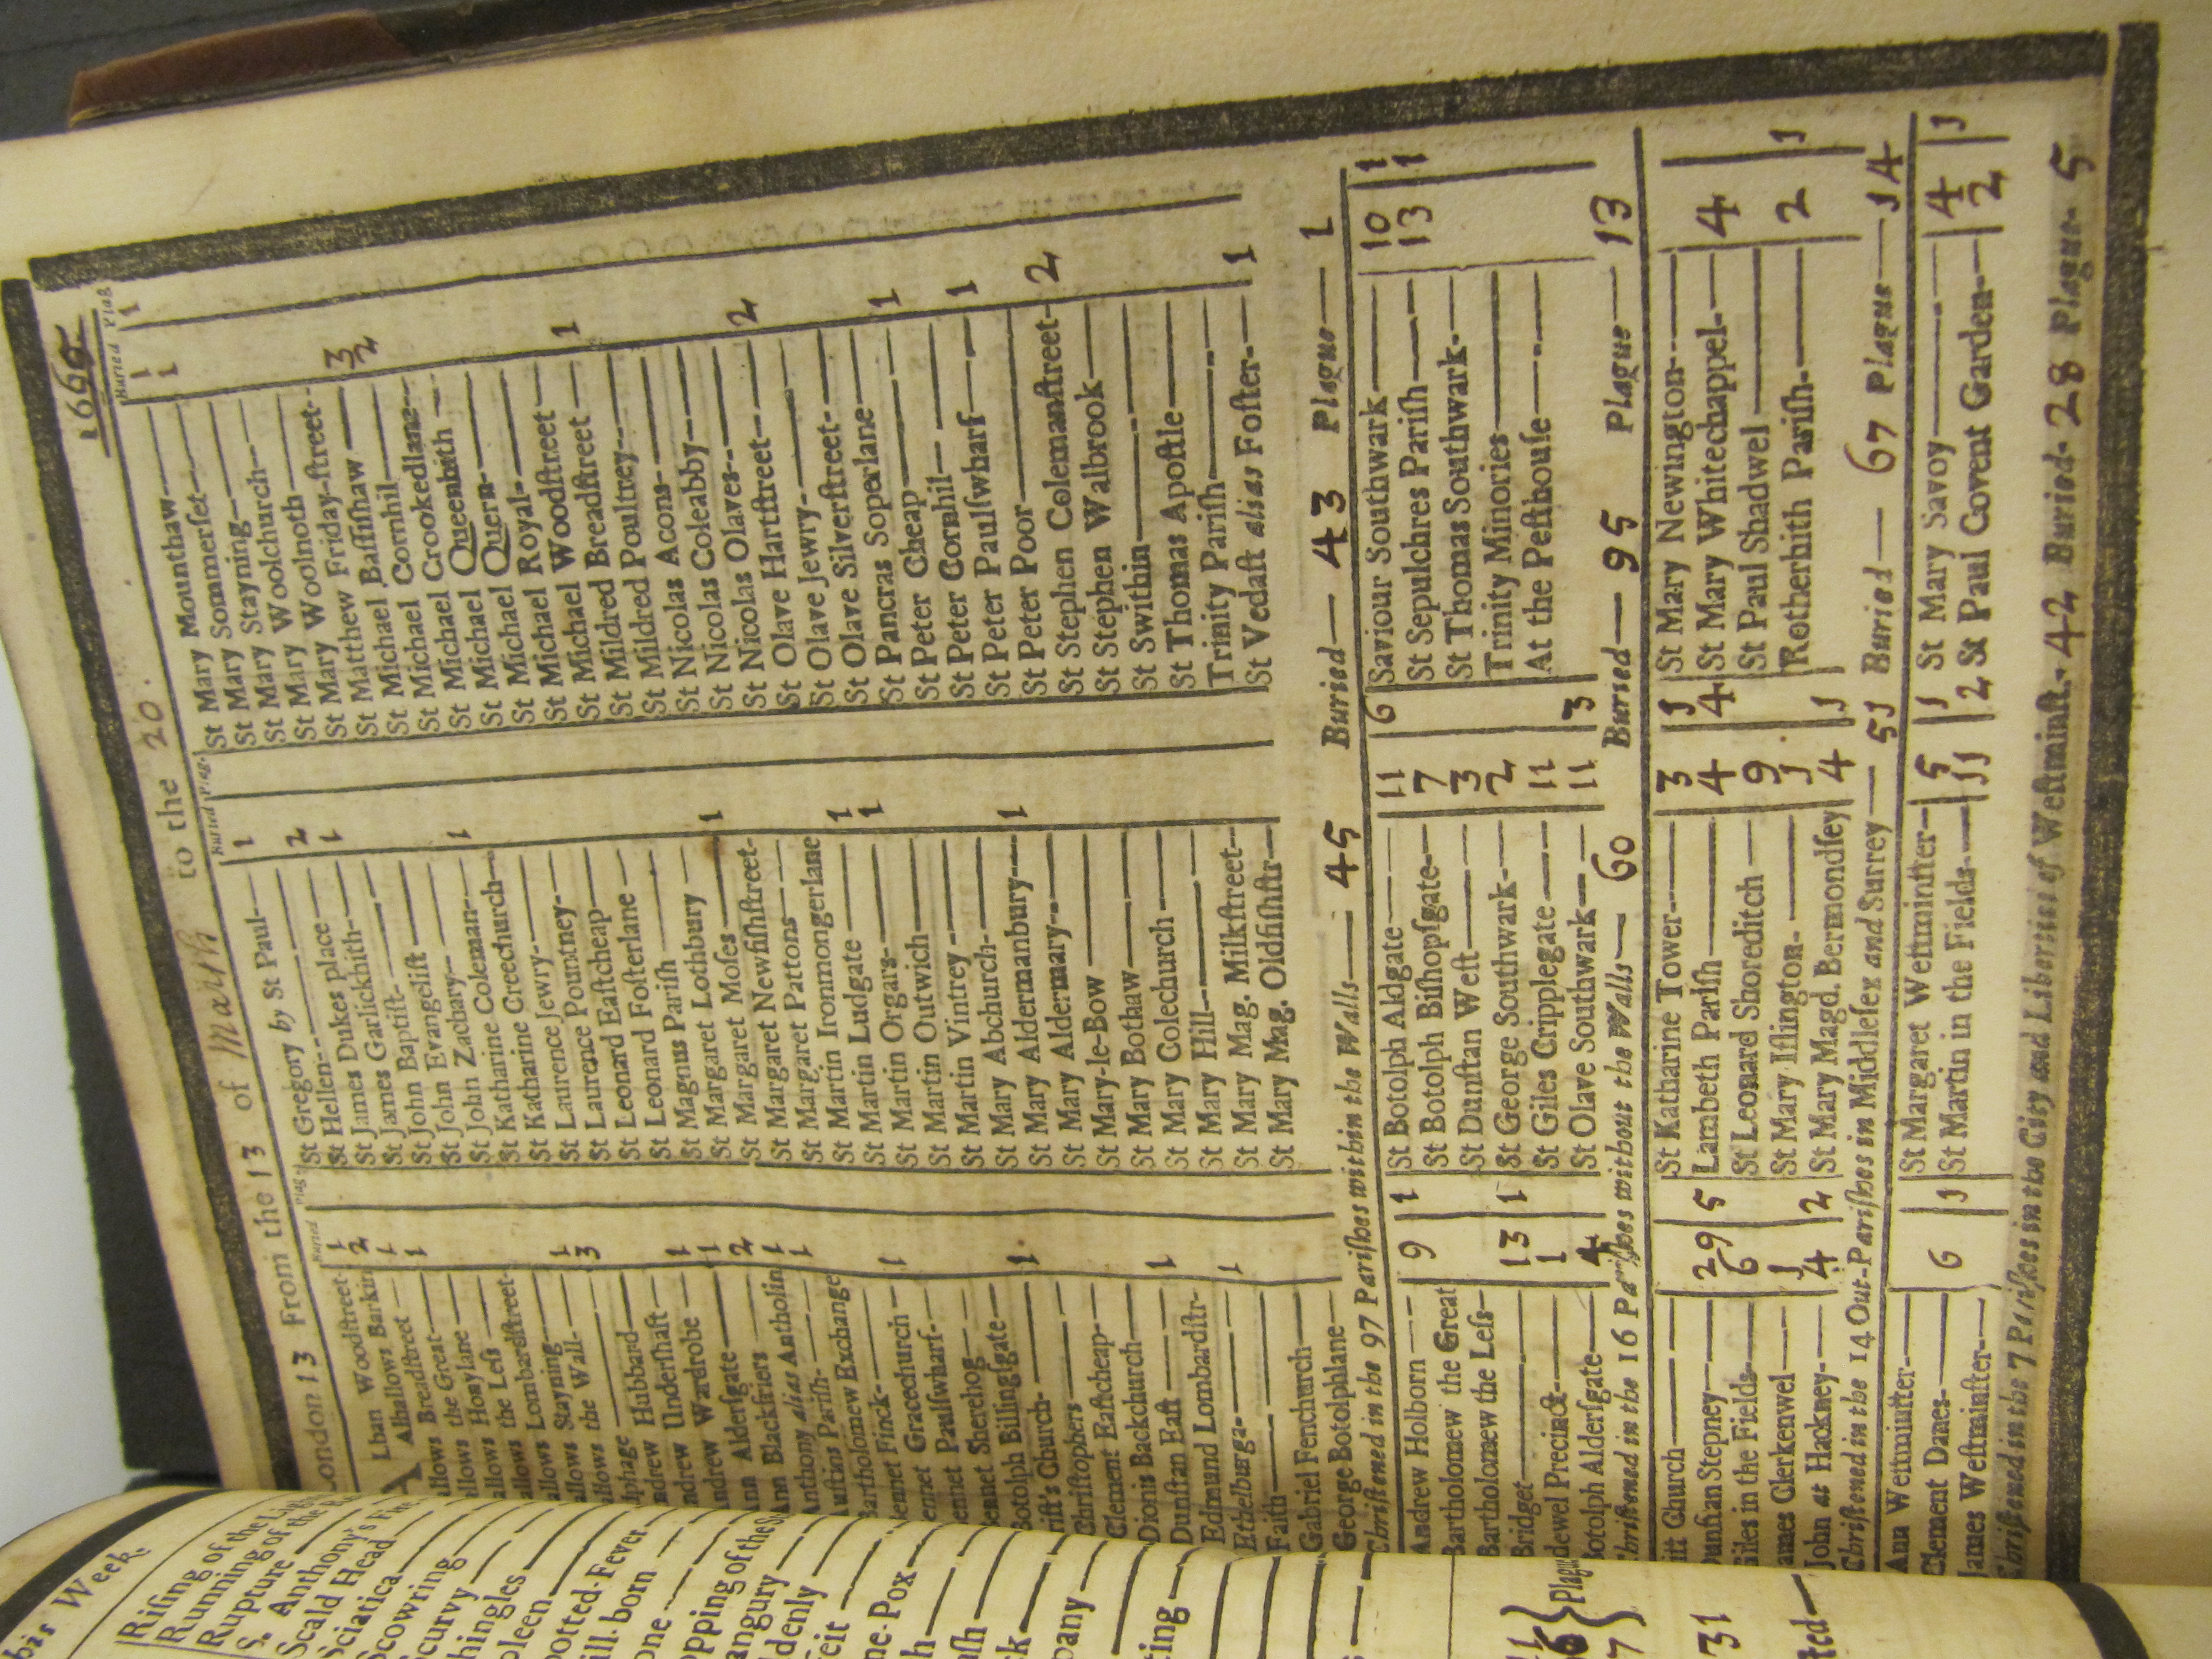 London 13 From the 13 of March to the 20. 1665
Buried Plag.
Lban Woodſtreet- 1
Alhallows Barkin 2
Breadſtreet 1
the Great 1
Honylane
the Leſs
Lombardſtreet
Stayning 1
the Wall 3
Hubbard
Underſhaft 1
Wardrobe 1
Alderſgate 2
Ann Blackfriers 1
Anthony alias Antholin 1
Auſtins Pariſh-
Bartholomew Exchange
Bennet Finck-
Gracechurch 1
Paulſwharf-
Sherehog
Botolph Billingſgate
Church- 1
Chriſtophers
Clement Eaſtcheap
Dionis Backchurch
Dunſtan Eaſt 1
Edmund Lombardſtr-
Ethelburga- 1
Faith
Gabriel Fenchurch
George Botolphlane
Buried Plag.
St Gregory by St Paul 1
St Hellen
St James Dukes place 2
St James Garlickhith 1
St John Baptiſt
St John Evangeliſt
St John Zachary
St Katharine Coleman 1
St Katharine Creechurch
St Laurence Jewry
St Laurence Pountney
St Leonard Eaſtcheap
St Leonard Foſterlane
St Magnus Pariſh
St Margaret Lothbury
St Margaret Moſes 1
St Margaret Newfiſhſtreet
St Margaret Pattons
St Martin Ironmongerlane
St Martin Ludgate 1
St Martin Orgars 1
St Martin Outwich
St Martin Vintrey
St Mary Abchurch
St Mary Aldermanbury 1
St Mary Aldermary
St Mary-le-Bow
St Mary Bothaw
St Mary Colechurch
St Mary Hill
St Mary Mag. Milkſtreet
St Mary Mag. Oldfiſhſtr
Buried Plag
St Mary Mounthaw 1 1
St Mary Sommerſet 1
St Mary Stayning
St Mary Woolchurch
St Mary Woolnoth
St Mary Friday-ſtreet
St Matthew Friday-ſtreet
St Michael Baſſiſhaw 3
St Michael Cornhil 2
St Michael Crookedlane
St Michael Queenhith
St Michael Quern
St Michael Royal
St Michael Woodſtreet
St Mildred Breadſtreet 1
St Mildred Poultrey
St Nicolas Acons
St Nicolas Coleabby
St Nicolas Olaves
St Olave Hartſtreet 2
St Olave Jewry
St Olave Silverſtreet
St Pancras Soperlane
St Peter Cheap 1
St Peter Cornhil
St Peter Paulſwharf 1
St Peter Poor
St Stephen Colemanſtreet 2
St Stephen Walbrook
St Swithin
St Thomas Apoſtle
Trinity Pariſh
St Vedaſt alias Foſter 1
Chriſtened in the 97 Pariſhes within the Walls 45 Buried 43 Plague 1
Andrew Holborn 9 1
Bartholomew the Great
Bartholomew the Leſs
Bridget 13 1
Bridewel Precinct 1
Botolph Alderſgate 4
St Botolph Aldgate 11 6
St Botolph Biſhopſgate 7
St Dunſtan Weſt 3
St George Southwark 2
St Giles Cripplegate 11
St Olave Southwark 11 3
Saviour Southwark 10 1
St Sepulchres Pariſh 13 1
St Thomas Southwark
Trinity Minories
At the Peſthouſe
Chriſtened in the 16 Pariſhes without the Walls 60 Buried 95 Plague 13
Church
Dunſtan Stepney 29 5
Giles in the Fields 6
James Clerkenwel 1
John at Hackney 4 2
St Katharine Tower 3 1
Lambeth Pariſh 4 4
St Leonard Shoreditch 9
St Mary Iſlington 1
St Mary Magd. Bermondſey 4 1
St Mary Newington
St Mary Whitechappel 4
St Paul Shadwel
Rotherhith Pariſh 2 1
Chriſtened in the 14 Out-Pariſhes in Middleſex and Surrey 51 Buried 67 Plague 14
Ann Weſtminſter
Clement Danes 6 1
James Weſtminſter
St Margaret Weſtminſter 5 1
St Martin in the Fields 11 2
St Mary Savoy 4 1
St Paul Covent Garden 2
Chriſtened in the 7 Pariſhes in the City and Liberties of Weſtminſt. 42 Buried 28 Plague 5
this Week.
Riſing of the
Running of the
Rupture
S. Anthony's Fire
Scald Head
Sciatica
Scowring
Scurvy
Shingles
Spleen
Spotted-Fever
Still-born
Stone
Stopping of the
Strangury
Suddenly
Pox
31